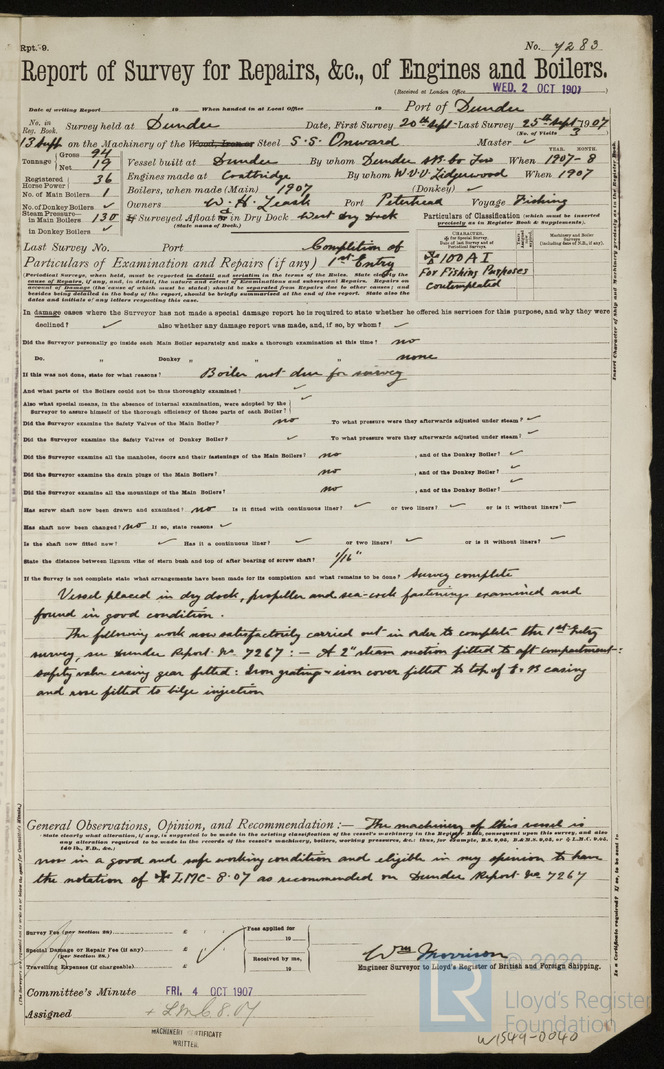 Rpt. 9.
No. 7283
Report of Survey for Repairs, &c., of Engines and Boilers.
(Received at London Office WED. 2 OCT 1907)
Date of writing Report 19 When handed in at Local Office 19 Port of Dundee
No. in Reg. Book. Survey held at Dundee Date, First Survey 20th Sept Last Survey 25th Sept 1907
(No. of Visits 3)
13 Supp on the Machinery of the Wood, Iron or Steel S.S. Onward Master ✓
Tonnage Gross 94 Net 19 Vessel built at Dundee By whom Dundee SB. Co Ltd When YEAR. MONTH. 1907-8
Registered Horse Power 36 Engines made at Coatbridge By whom W.V.V. Lidgerwood When 1907
No. of Main Boilers 1 Boilers, when made (Main) 1907 (Donkey) ✓
No. of Donkey Boilers ✓ Owners W. H. Leask Port Peterhead Voyage Fishing
Steam Pressure in Main Boilers 130 If Surveyed Afloat or in Dry Dock West Dry Dock
(State name of Dock.)
in Donkey Boilers ✓
Particulars of Classification (which must be inserted precisely as in Register Book & Supplements).
Last Survey No. Port Completion of
Particulars of Examination and Repairs (if any) 1st Entry
CHARACTER.
Machinery and Boiler Surveys (including dates of N.B., if any).
✠ 100 A I
For Fishing Purposes
contemplated
(Periodical Surveys, when held, must be reported in detail and seriatim in the terms of the Rules. State clearly the cause of Repairs, if any, and, in detail, the nature and extent of Examinations and subsequent Repairs. Repairs on account of Damage (the cause of which must be stated) should be separated from Repairs due to other causes; and besides being detailed in the body of the report, should be briefly summarised at the end of the report. State also the dates and initials of any letters respecting this case.)
In damage cases where the Surveyor has not made a special damage report he is required to state whether he offered his services for this purpose, and why they were
declined? ✓ also whether any damage report was made, and, if so, by whom? ✓
Did the Surveyor personally go inside each Main Boiler separately and make a thorough examination at this time? no
Do. " Donkey " " " none
If this was not done, state for what reasons? Boiler not due for survey
And what parts of the Boilers could not be thus thoroughly examined? ✓
Also what special means, in the absence of internal examination, were adopted by the
Surveyor to assure himself of the thorough efficiency of those parts of each Boiler? ✓
Did the Surveyor examine the Safety Valves of the Main Boiler? no To what pressure were they afterwards adjusted under steam? ✓
Did the Surveyor examine the Safety Valves of Donkey Boiler? ✓ To what pressure were they afterwards adjusted under steam? ✓
Did the Surveyor examine all the manholes, doors and their fastenings of the Main Boilers? no , and of the Donkey Boiler? ✓
Did the Surveyor examine the drain plugs of the Main Boilers? no , and of the Donkey Boiler? ✓
Did the Surveyor examine all the mountings of the Main Boilers? no , and of the Donkey Boiler? ✓
Has screw shaft now been drawn and examined? no Is it fitted with continuous liner? ✓ or two liners? ✓ or is it without liners? –
Has shaft now been changed? no If so, state reasons ✓
Is the shaft now fitted new? ✓ Has it a continuous liner? ✓ or two liners? ✓ or is it without liners? ✓
State the distance between lignum vitæ of stern bush and top of after bearing of screw shaft? 1/16"
If the Survey is not complete state what arrangements have been made for its completion and what remains to be done? Survey complete
Vessel placed in dry dock, propeller and sea-cock fastenings examined and
found in good condition.
The following work now satisfactorily carried out in order to complete the 1st Entry
survey, see Dundee Report No. 7267 :— A 2" steam suction fitted to aft compartment:
safety valve easing gear fitted: Iron grating & iron cover fitted to top of E & B casing
and rose fitted to bilge injection
General Observations, Opinion, and Recommendation :— The machinery of this vessel is
now in a good and safe working condition and eligible in my opinion to have
the notation of ✠ LMC- 8·07 as recommended on Dundee Report No 7267
Survey Fee (per Section 28) £
Special Damage or Repair Fee (if any) (per Section 28.) £
Travelling Expenses (if chargeable) £
Fees applied for 19
Received by me, 19
Wm Morrison
Engineer Surveyor to Lloyd's Register of British and Foreign Shipping.
Committee's Minute FRI. 4 OCT 1907
Assigned + L.M.C. 8.07
MACHINERY CERTIFICATE
WRITTEN.
© 2020
LR Lloyd's Register
Foundation
W1549-0040